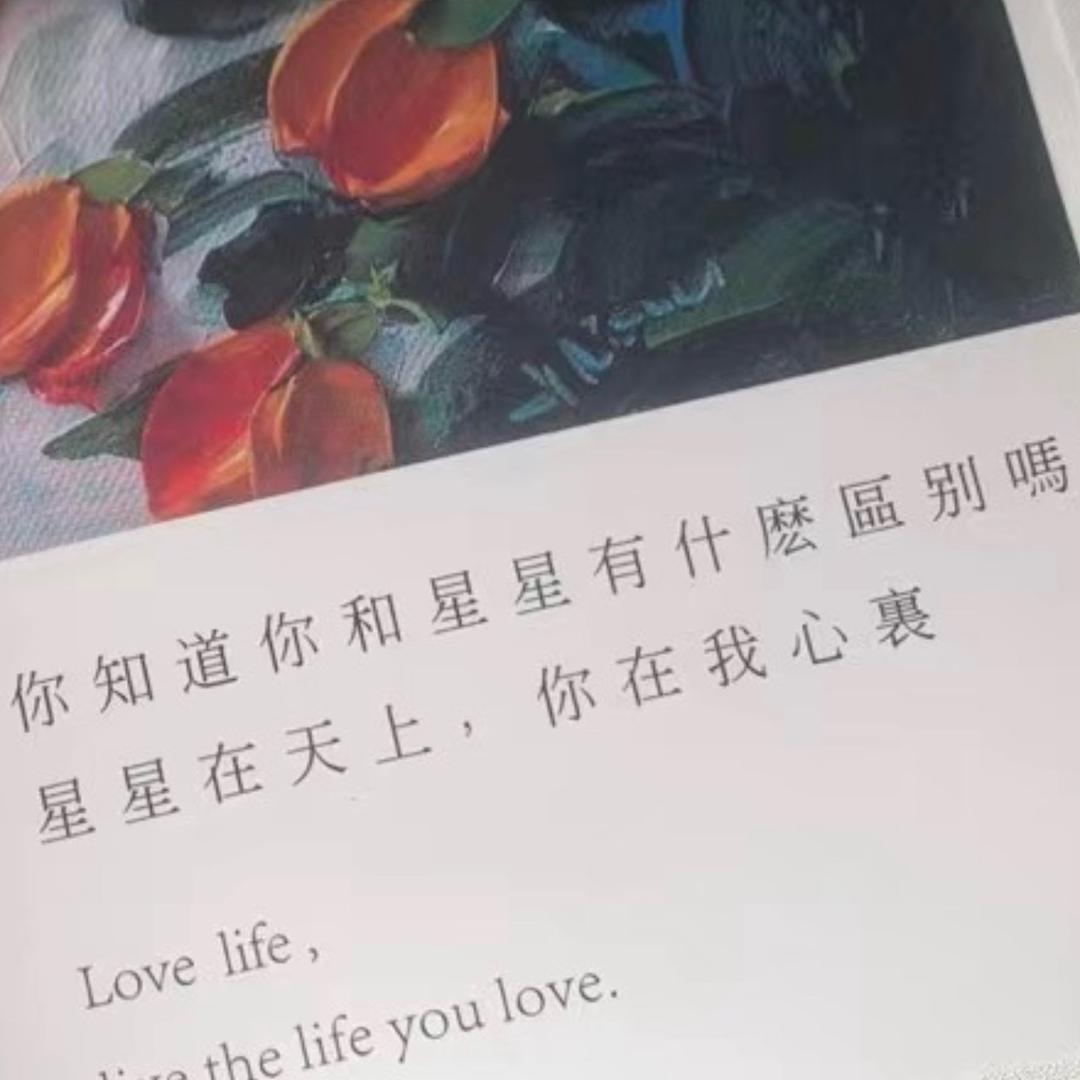 你知道你和星星有什麽區别嗎
星星在天上，你在我心裏
Love life,
live the life you love.